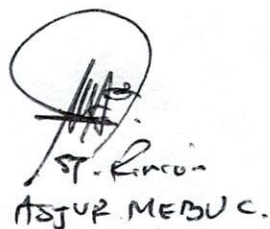 ST. Rincon
ASJUR MEBUC.